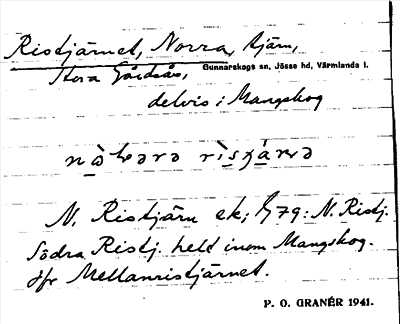 Ristjärnet, Norra, tjärn,
Stora Gårdsås, Gunnarskogs sn, Jösse hd, Värmlands l.
delvis i Mangskog
N. Ristjärn ek; G79: N. Ristj.
Södra Ristj. helt inom Mangskog.
Jfr Mellanristjärnet.
P. O. GRANÉR 1941.